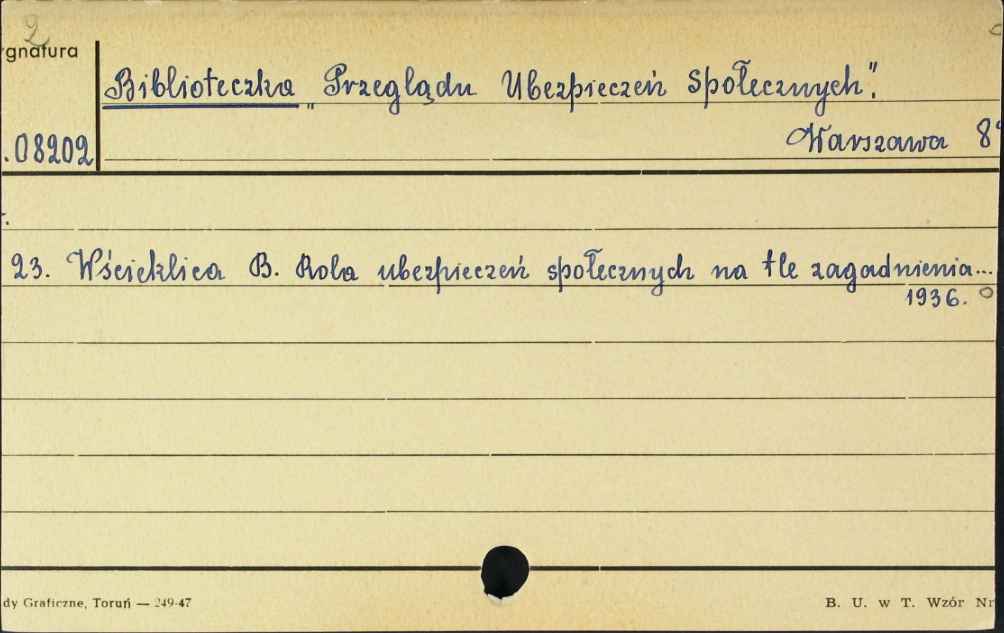 2
gnatura
Biblioteczka „Przeglądu Ubezpieczeń Społecznych".
.08202
Warszawa 8°
23. Wścieklica B. Rola ubezpieczeń społecznych na tle zagadnienia...
1936.
dy Graficzne, Toruń — 249-47
B. U. w T. Wzór Nr